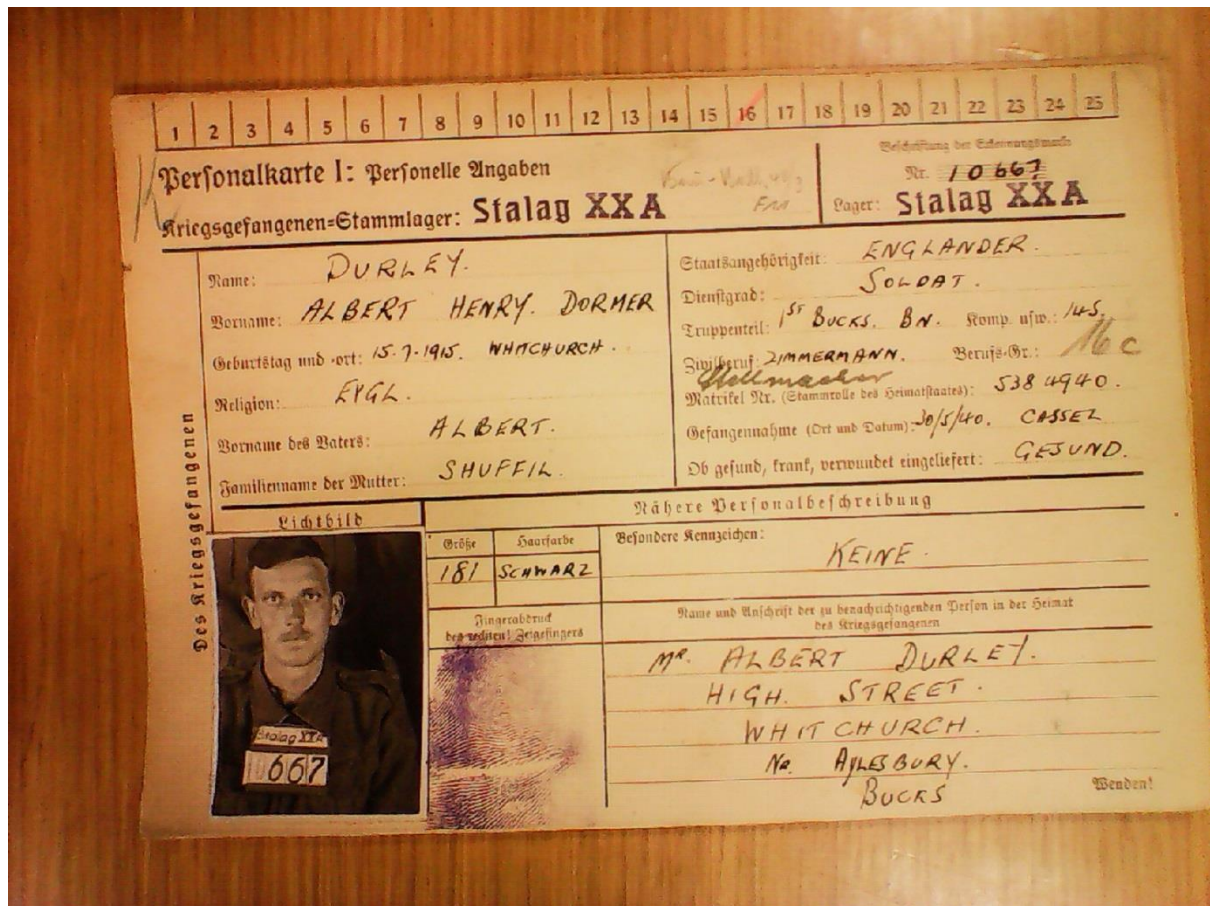 1 2 3 4 5 6 7 8 9 10 11 12 13 14 15 16 17 18 19 20 21 22 23 24 25
Personalkarte I: Personelle Angaben
Kriegsgefangenen=Stammlager: Stalag XXA
Beschriftung der Erkennungsmarke
Nr. 10667
Lager: Stalag XXA
Des Kriegsgefangenen
Name: DURLEY.
Vorname: ALBERT HENRY. DORMER
Geburtstag und -ort: 15.7.1915. WHITCHURCH.
Religion: EYGL.
Vorname des Vaters: ALBERT.
Familienname der Mutter: SHUFFIL.
Staatsangehörigkeit: ENGLANDER.
Dienstgrad: SOLDAT.
Truppenteil: 1ST BUCKS. BN. Komp. usw.: 145.
Zivilberuf: ZIMMERMANN. Berufs-Gr.: 16 c
Stellmacher
Matrikel Nr. (Stammrolle des Heimatstaates): 5384940.
Gefangennahme (Ort und Datum): 30/5/40. CASSEL
Ob gesund, krank, verwundet eingeliefert: GESUND.
Lichtbild
Stalag XXA
10667
Nähere Personalbeschreibung
Größe Haarfarbe
181 SCHWARZ
Fingerabdruck
des rechten! Zeigefingers
Besondere Kennzeichen:
KEINE.
Name und Anschrift der zu benachrichtigenden Person in der Heimat
des Kriegsgefangenen
MR. ALBERT DURLEY.
HIGH. STREET.
WHITCHURCH.
Nr. AYLESBURY.
BUCKS
Wenden!